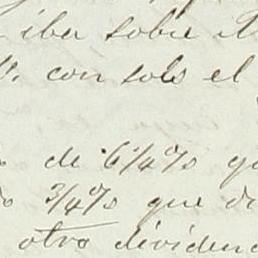 iba sobre
con solo el
de 6 1/4 %
3/4 % que di
otro dividen